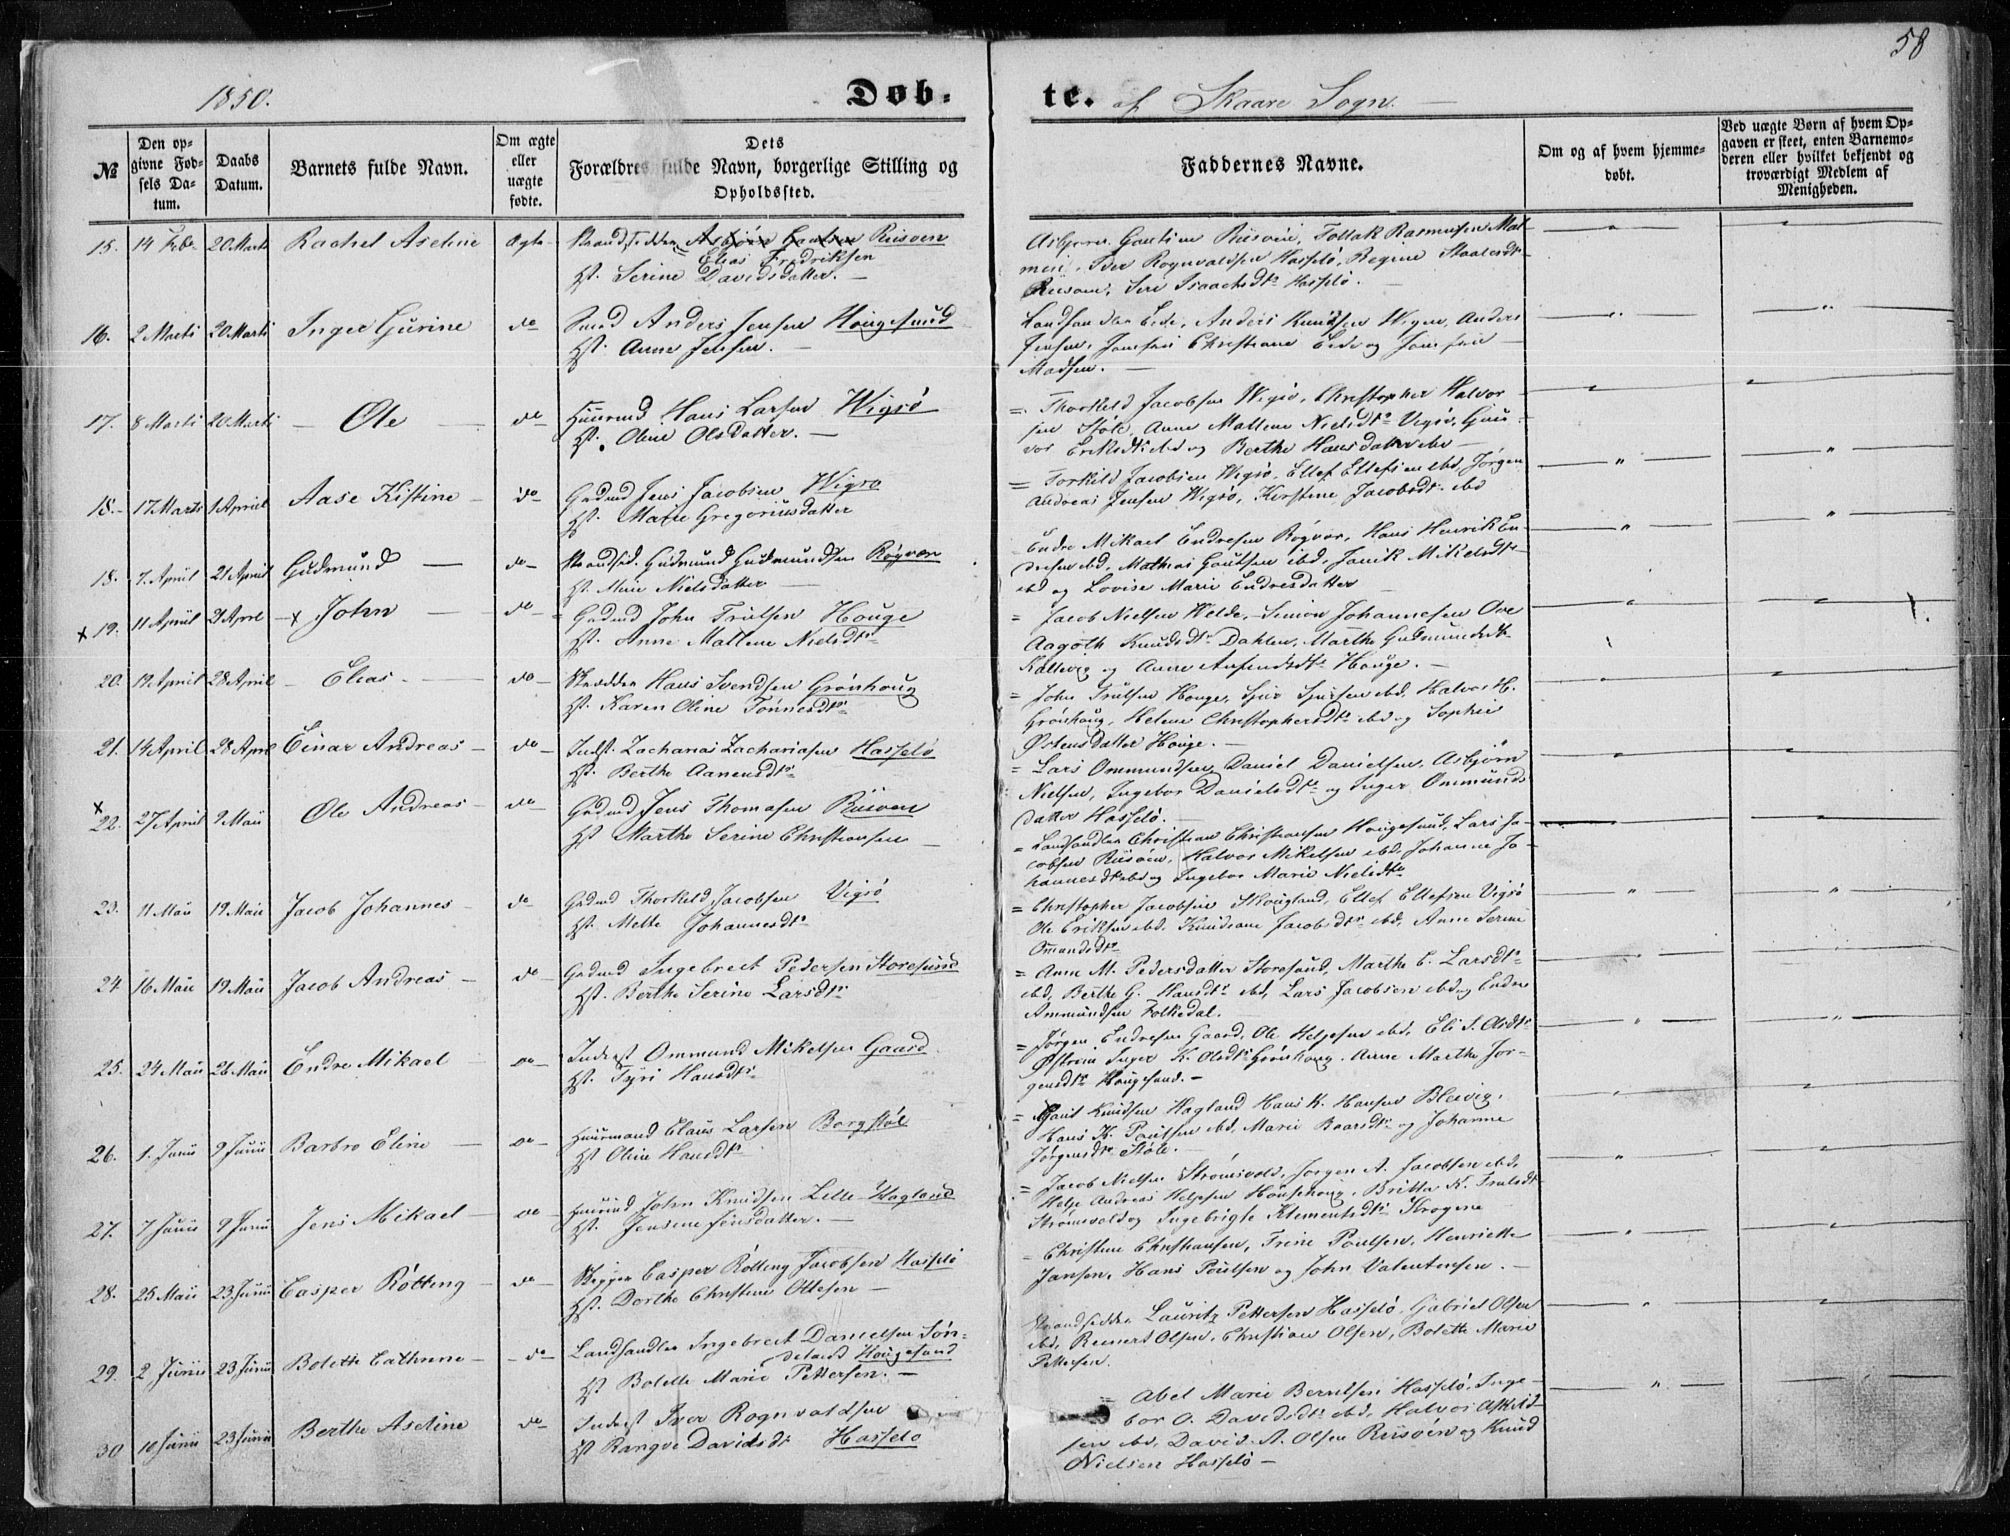 58
1850.
Døb-
te. af Skaare Sogn.
№
Den op-
givne Fød-
sels Da-
tum.
Daabs
Datum.
Barnets fulde Navn.
Om ægte
eller
uægte
fødte.
Dets
Forældres fulde Navn, borgerlige Stilling og
Opholdssted.
Faddernes Navne.
Om og af hvem hjemme-
døbt.
Ved uægte Børn af hvem Op-
gaven er skeet, enten Barnemo-
deren eller hvilket bekjendt og
troværdigt Medlem af
Menigheden.
15. 14 Febr 20 Marts Rachel Aseline Ægte Strandsidder Asbjørn Gautsen Riisøen
Elias Fredriksen
Hst. Serine Davidsdatter.
Asbjørn Gautsen Riisøen, Tollak Rasmussen
Iver Rognvaldsen Hasselö, Regine
Riisøen, Siri Isaachsdtr Hasselö.
16. 2 Marts 20 Marts Inger Gurine do Smed Anders Jensen Hougesund
Hst. Anne Jensen.
Landhandler Eide, Anders Knudsen Wigen, Anders
Jensen, Jomfrue Christiane Eide og Jomfrue
Madsen.
17. 8 Marts 20 Marts Ole do Huusmd Hans Larsen Wigsö
Hst. Oline Olsdatter.
Thorkild Jacobsen Wigsö, Christopher Halvor-
sen Støle, Anne Mallene Nielsdtr Vigsö, Guu-
vor Eriksdtr ebd og Berthe Hansdatter ebd
18. 17 Marts 1 April Aase Kistine do Gaardmd Jens Jacobsen Wigsö
Hst. Marie Gregoriusdatter
Torkild Jacobsen Wigsö, Ellef Ellefsen ebd, Jörgen
Andreas Jensen Wigsö, Kirstine Jacobsdtr ebd
18. 7 April 21 April Gudmund do Strandsid. Gudmund Gudmundsen Røgvær
Hst. Nielsdatter
Endre Mikael Endresen Røgvær, Hans Henrik En-
dresen ebd, Mathias Gautsen ebd, Mikelsdtr
ebd og Lovise Marie Endresdatter
x 19. 11 April 21 Aprl x John do Gaardmd John Trulsen Houge
Hst. Anne Mallene Nielsdtr
Jacob Nielsen Welde, Simon Johannesen Ove
Aagoth Knudsdtr Dahlen, Marthe Gudmundsdtr
Kallevig og Anne Houge.
20. 19 April 28 April Elias do Skrædder Hans Svendsen Grönhoug
Hst. Karen Oline Tönnesdtr
John Trulsen Houge, ebd, Halvor H.
Grönhoug, Helene Christophersdtr ebd og Sophie
Østensdatter Houge.
21. 14 April 28 Aprl Einar Andreas do Indst. Zacharias Zachariasen Hasselö
Hst. Berthe Aanensdtr
Lars Ommundsen, Daniel Danielsen, Asbjörn
Nielsen, Ingebor Danielsdtr og Inger Ommunds-
datter Hasselö.
x 22. 27 April 9 Maii Ole Andreas do Gaardmd Jens Thomasen Riisøen
Hst Marthe Serine Christiansen
Landhandler Christian Christiansen Hougesund, Lars Ja-
cobsen Riisøen, Halvor Mikelsen ebd, Johanne Jo-
hannesdtr ebd og Ingebor Marie Nielsdtr
23. 11 Maii 19 Maii Jacob Johannes do Gaardmd Thorkild Jacobsen Vigsö
Hst. Mette Johannesdtr
Christopher Jacobsen Skougland, Ellef Ellefsen Vigsö
Ole Eriksen ebd, Knudiane Jacobsdtr ebd, Anne Serine
Omandsdtr
24 16 Maii 19 Maii Jacob Andreas do Gaardmd Ingebret Pedersen Storesund
Hst. Berthe Serine Larsdtr
Anne M. Pedersdatter Storesund, Marthe E. Larsdtr
ebd, Berthe G. Hansdtr ebd, Lars Jacobsen ebd og Endre
Ammundsen Folkedal.
25. 24 Maii 26 Maii Endre Mikael do Inderst Ommund Mikelsen Gaard
Hst. Tyri Hansdtr
Jörgen Endresen Gaard, Ole Helgesen ebd, Eli S. Olsdtr
Østrem Inger K. Olsdtr Grönhoug, Anne Marthe Jör-
gensdtr Hougesund.
26. 1. Junii 9 Junii Barbro Eline do Huusmand Claus Larsen Borgstøl
Hst Oline Hansdtr
Knudsen Hagland Hans K. Hansen Bleivig,
Hans K. Poulsen ebd, Marie Roarsdtr og Johanne
Jörgensdtr Støle.
27. 7 Junii 9 Junii Jens Mikael do Huusmd John Knudsen Lille Hagland
Hst. Jensine Jensdatter.
Jacob Nielsen Strömsvold, Jörgen A. Jacobsen ebd,
Helje Andreas Helgesen, Britta K. Trulsdtr
Strömsvold og Ingebrigte Klementsdtr
28. 25 Maii 23 Junii Casper Rötting do Skipper Casper Rötting Jacobsen Hasselö
Hst. Dorthe Christine Ottesen
Christine Christiansen, Trine Poulsen, Henriette
Jansen, Hans Poulsen og John Valentinsen.
29. 2 Junii 23 Junii Bolette Cathrine do Landhandler Ingebret Danielsen Søn-
Hougesund
Hst Bolette Marie Pettersen.
Strandsidder Lauritz Pettersen Hasselö, Gabriel Olsen
ebd, Reinert Olsen, Christian Olsen, Bolette Marie
Pettersen.
30 10 Junii 23 Junii Berthe Aseline do Inderst Iver Rognvaldsen
Hst Rangve Davidsdtr Hasselö
Abel Marie Berntsen Hasselö, Inge-
bor O. Davidsdtr ebd, Halvor Askild-
sen ebd, David A. Olsen Riisøen og Knud
Nielsen Hasselö